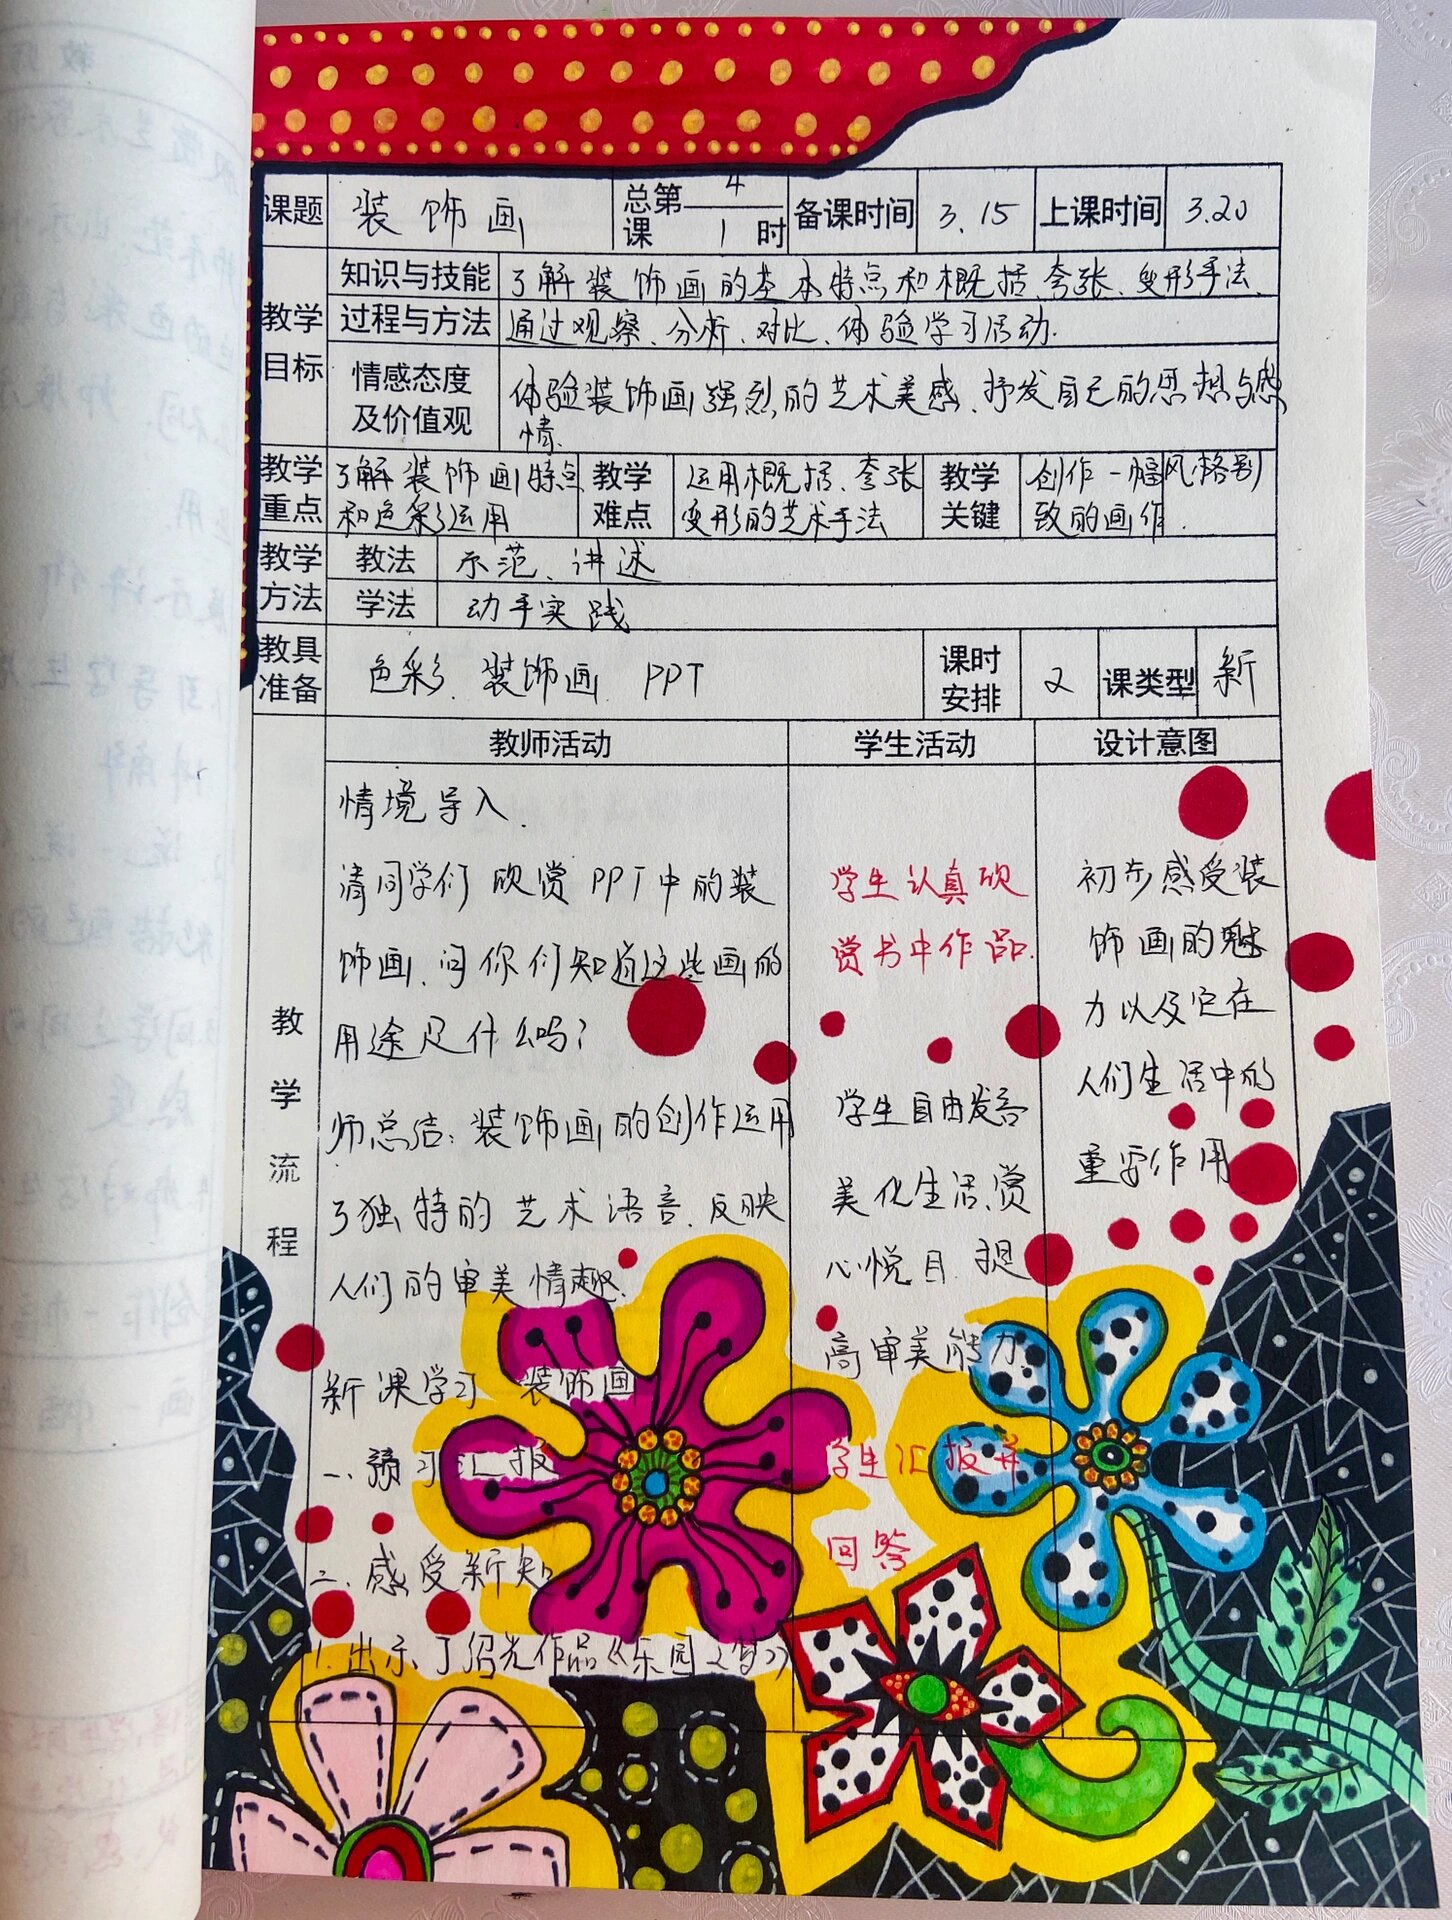 课题 装饰画 总第4课1时 备课时间 3.15 上课时间 3.20
教学目标
知识与技能 了解装饰画的基本特点和概括、夸张、变形手法、
过程与方法 通过观察、分析、对比、体验学习活动.
情感态度及价值观 体验装饰画强烈的艺术美感、抒发自己的思想与感情.
教学重点 了解装饰画特点和色彩运用
教学难点 运用概括、夸张变形的艺术手法
教学关键 创作一幅风格别致的画作.
教学方法
教法 示范、讲述
学法 动手实践
教具准备 色彩、装饰画、PPT
课时安排 2 课类型 新
教学流程
教师活动
情境导入.
请同学们欣赏PPT中的装
饰画.问你们知道这些画的
用途是什么吗?
师总结:装饰画的创作运用
了独特的艺术语言.反映
人们的审美情趣.
新课学习 装饰画
一、预习汇报
二、感受新知
1.出示丁绍光作品《乐园之梦》
学生活动
学生认真欣
赏书中作品.
学生自由发言
美化生活、赏
心悦目.提
高审美能力.
学生汇报并
回答
设计意图
初步感受装
饰画的魅
力以及它在
人们生活中的
重要作用